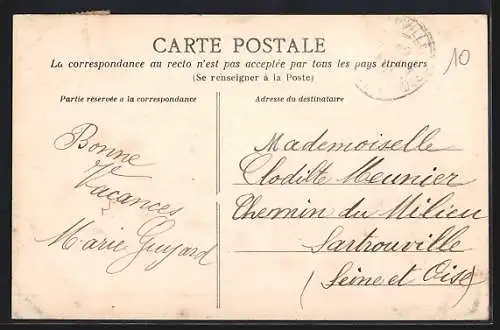 CARTE POSTALE
La correspondance au recto n'est pas acceptée par tous les pays étrangers
(Se renseigner à la Poste)
Partie réservée à la correspondance
Adresse du destinataire
10
Bonne
Vacances
Marie Guyard
Mademoiselle
Clodilte Meunier
Chemin du Milieu
Sartrouville
(Seine et Oise)